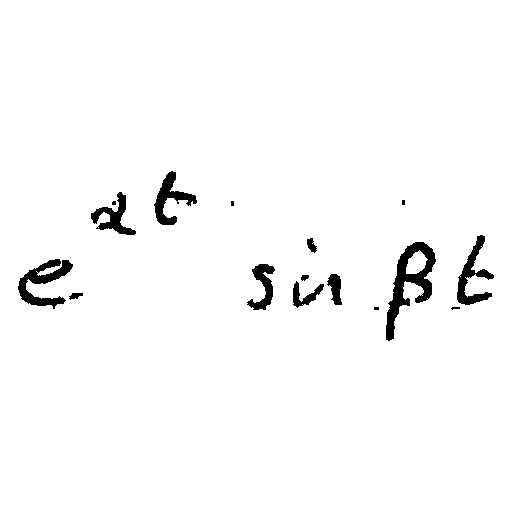 e^{αt} sin βt